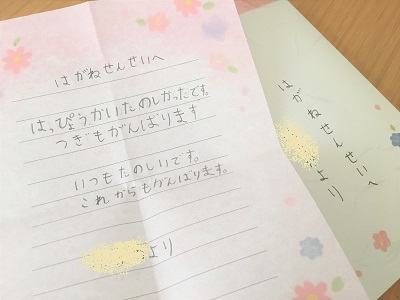 はがねせんせいへ
はっぴょうかいたのしかったです。
つぎもがんばります
いつもたのしいです。
これからもがんばります。
より
はがねせんせいへ
より